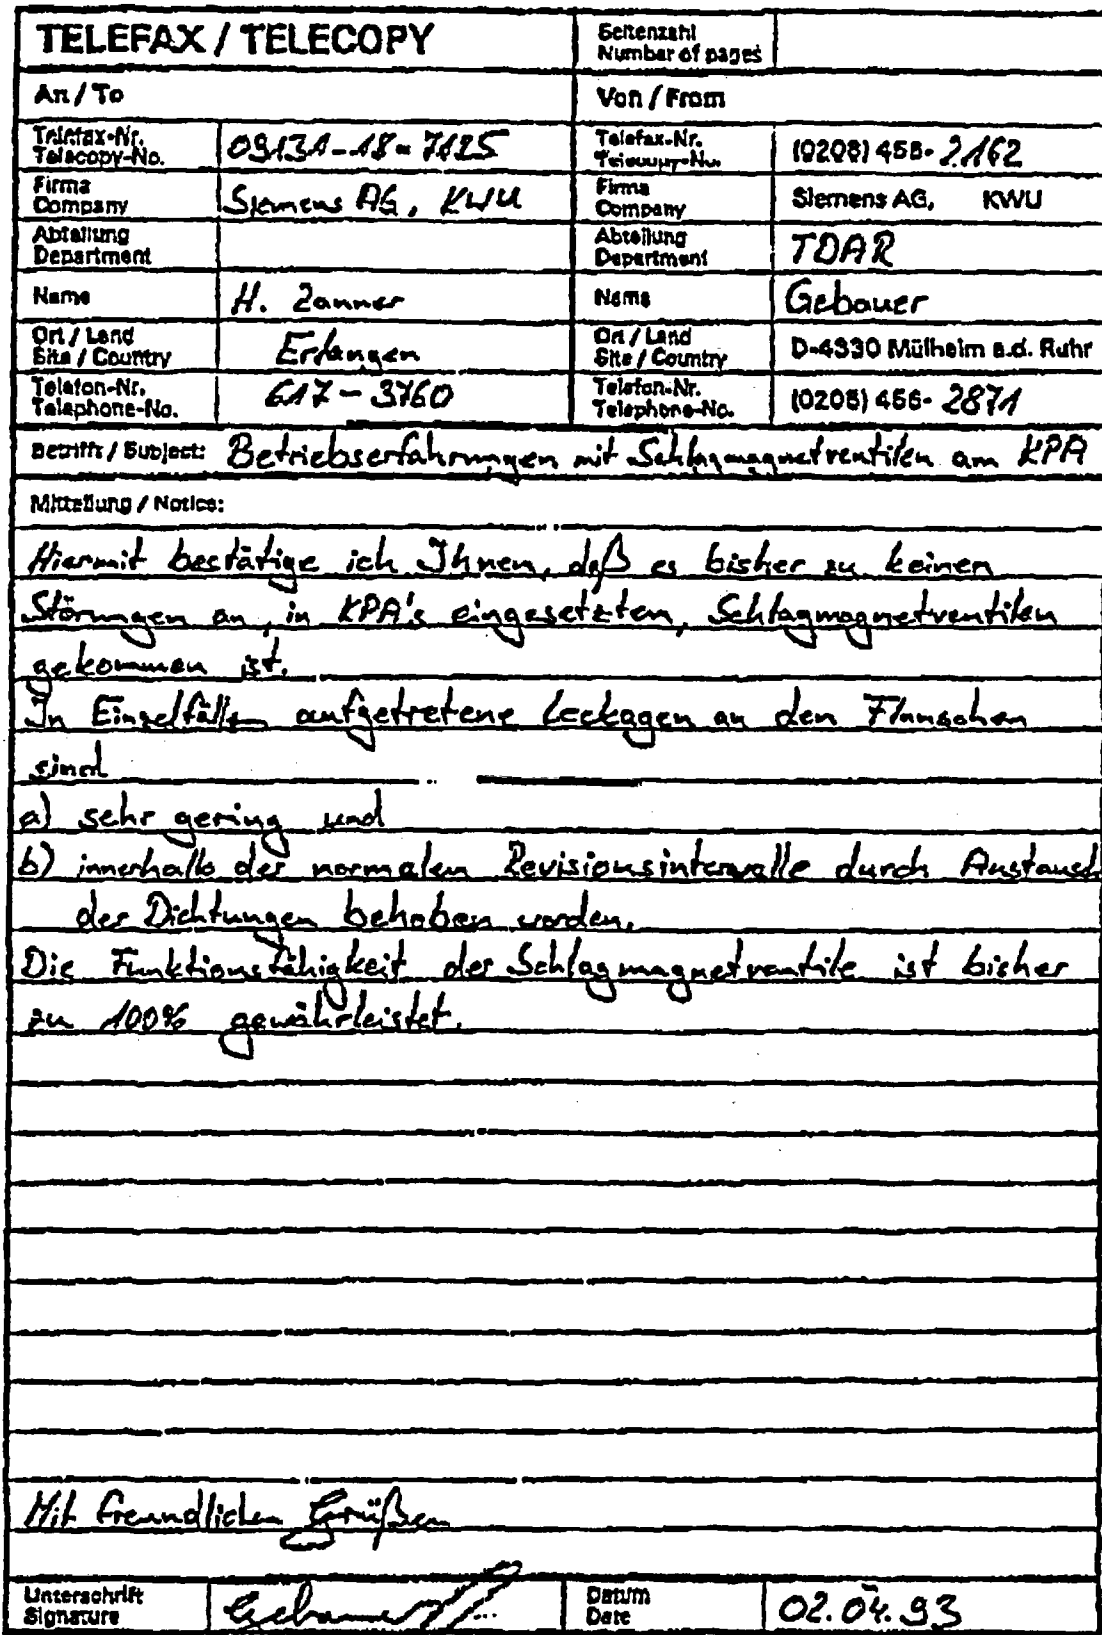 TELEFAX / TELECOPY
Seitenzahl
Number of pages
An / To
Von / From
Telefax-Nr.
Telecopy-No.
09131-18-7125
Telefax-Nr.
Telecopy-No.
(0208) 456-2162
Firma
Company
Siemens AG, KWU
Firma
Company
Siemens AG, KWU
Abteilung
Department
Abteilung
Department
TDAR
Name
H. Zanner
Name
Gebauer
Ort / Land
Site / Country
Erlangen
Ort / Land
Site / Country
D-4330 Mülheim a.d. Ruhr
Telefon-Nr.
Telephone-No.
617-3760
Telefon-Nr.
Telephone-No.
(0208) 456-2871
Betrifft / Subject: Betriebserfahrungen mit Schlagmagnetventilen am KPA
Mitteilung / Notice:
Hiermit bestätige ich Ihnen, daß es bisher zu keinen
Störungen an, in KPA's eingesetzten, Schlagmagnetventilen
gekommen ist.
In Einzelfällen aufgetretene Leckagen an den Flanschen
sind
a) sehr gering und
b) innerhalb der normalen Revisionsintervalle durch Austausch
der Dichtungen behoben worden.
Die Funktionsfähigkeit der Schlagmagnetventile ist bisher
zu 100% gewährleistet.
Mit freundlichen Grüßen
Unterschrift
Signature
Gebauer
Datum
Date
02.04.93